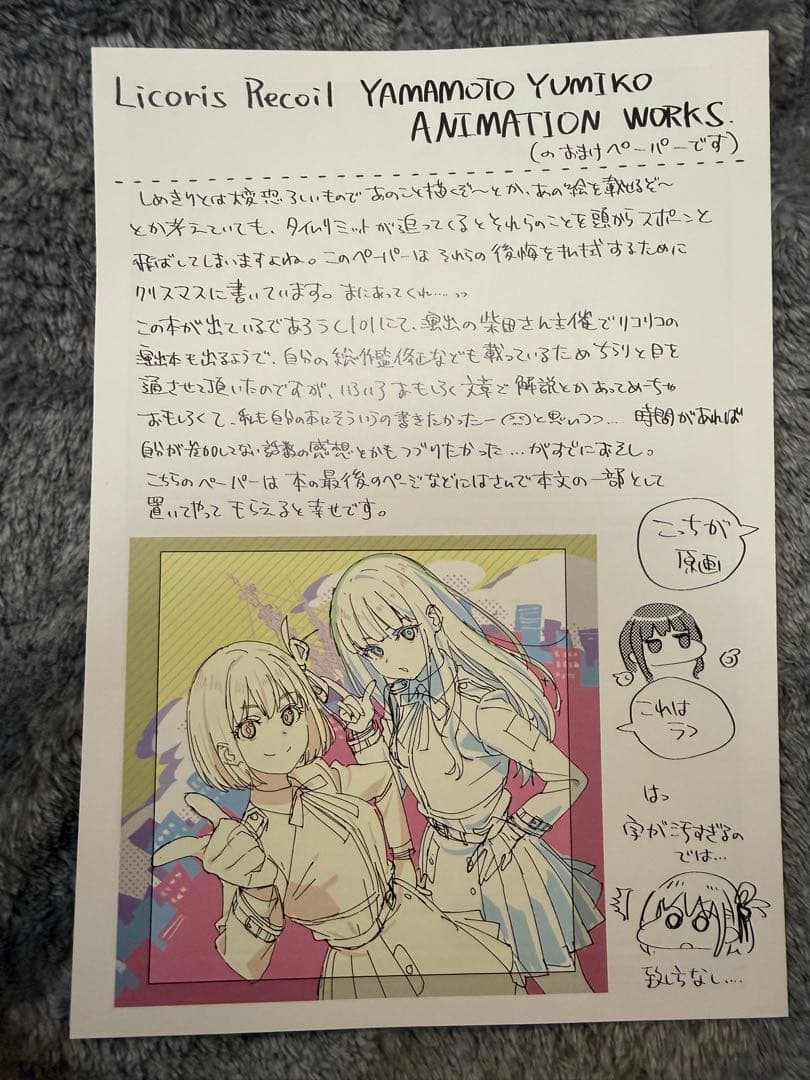 Licoris Recoil YAMAMOTO YUMIKO
ANIMATION WORKS.
(のおまけペーパーです)
しめきりとは大変恐ろしいもので あのこと描くぞ〜とか、あの絵を載せるぞ〜
とか考えていても、タイムリミットが迫ってくるとそれらのことを頭からスポーンと
飛ばしてしまいますよね。このペーパーは それらの後悔を払拭するために
クリスマスに書いています。まにあってくれ……っっ
この本が出ているであろうC101にて、演出の柴田さん主催でリコリコの
演出本も出るようで、自分の総作監修正なども載っているため ちらりと目を
通させて頂いたのですが、いろいろおもしろく文章で解説とかあってめーちゃ
おもしろくて、私も自分の本にそういうの書きたかったー と思いつつ.... 時間があれば
自分が参加してない話数の感想とかもつづりたかった…がすでにおそし。
こちらのペーパーは 本の最後のページなどにはさんで本文の一部として
置いてやって もらえると幸せです。
こっちが
原画
これは
ラフ
はっ
字が汚すぎるの
では…
致し方なし….